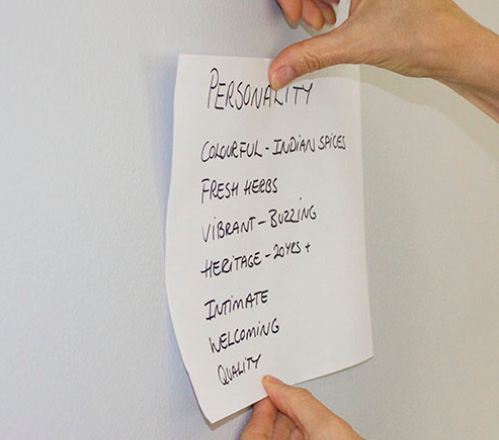 PERSONALITY
COLOURFUL - INDIAN SPICES
FRESH HERBS
VIBRANT - BUZZING
HERITAGE - 20YRS +
INTIMATE
WELCOMING
QUALITY